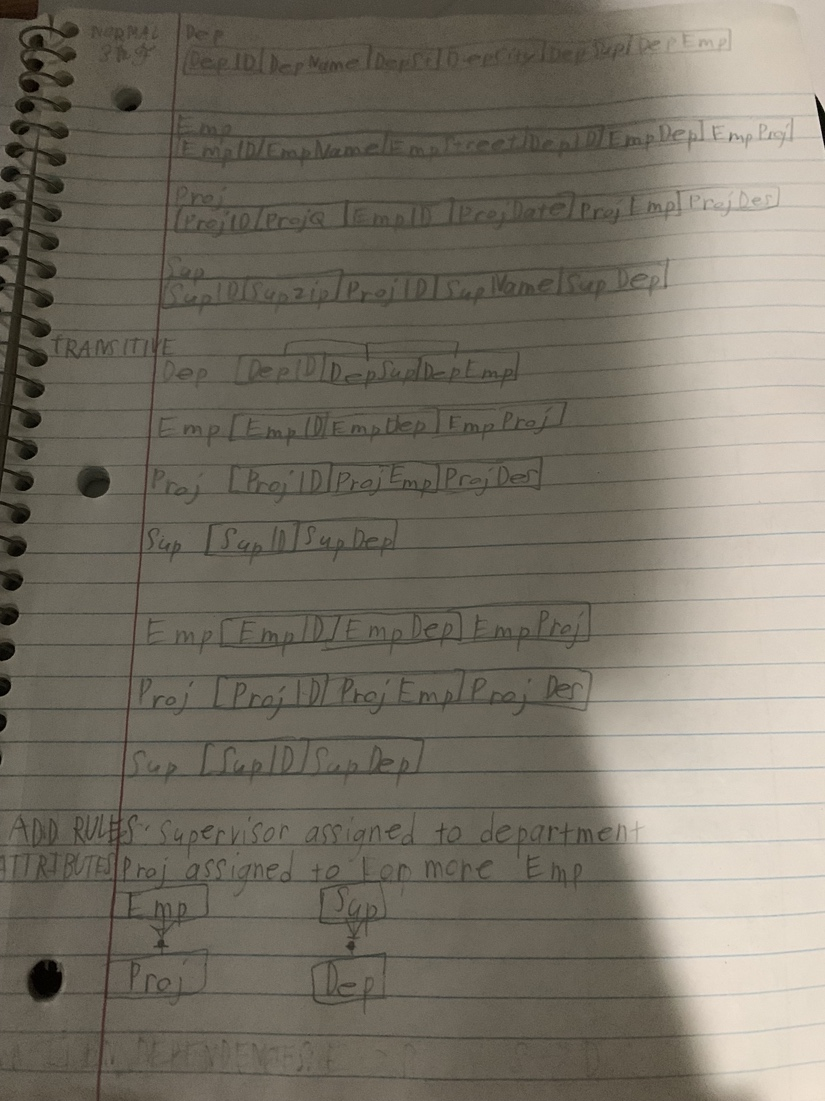 NORMAL Dep
DepID DepName DepSt DepCity DepSup DepEmp
Emp
EmpID EmpName EmpStreet DepID EmpDep EmpProj
Proj
ProjID ProjQ EmpID ProjDate ProjEmp ProjDes
Sup
SupID Supzip ProjID SupName SupDep
TRANSITIVE
Dep DepID DepSup DepEmp
Emp EmpID EmpDep EmpProj
Proj ProjID ProjEmp ProjDes
Sup SupID SupDep
Emp EmpID EmpDep EmpProj
Proj ProjID ProjEmp ProjDes
Sup SupID SupDep
ADD RULES: Supervisor assigned to department
ATTRIBUTES Proj assigned to 1 or more Emp
Emp Sup
Proj Dep